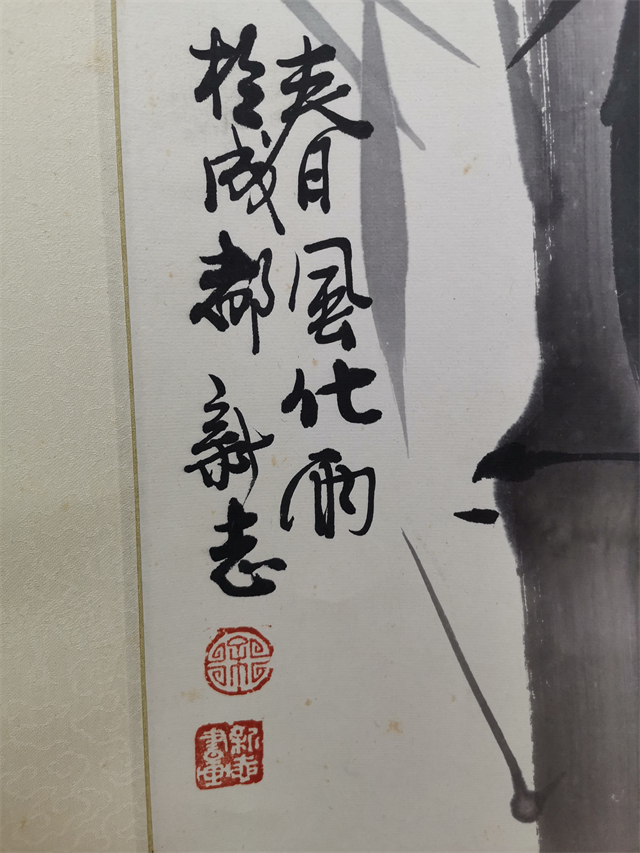 春日風化雨
於成都新志
新志書畫